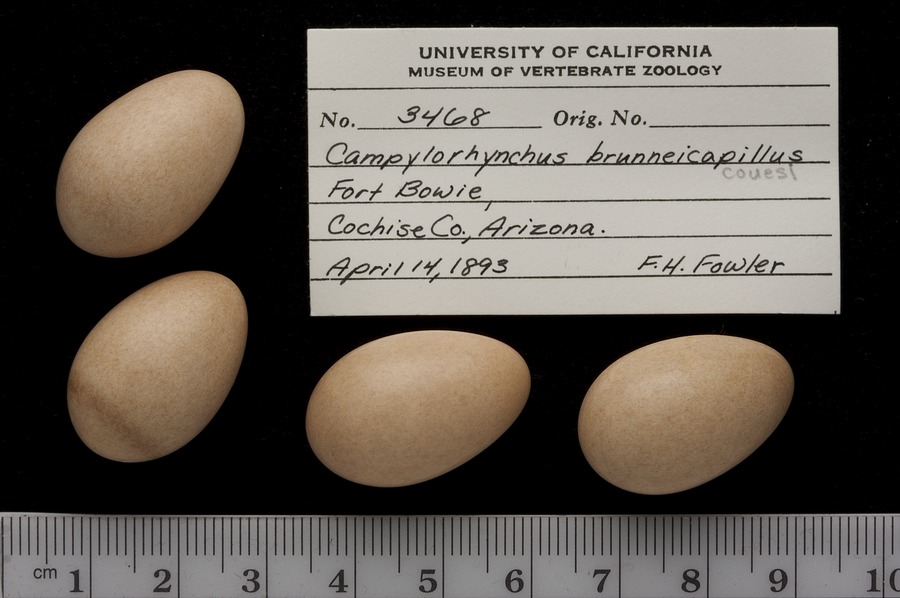 UNIVERSITY OF CALIFORNIA
MUSEUM OF VERTEBRATE ZOOLOGY
No. 3468 Orig. No.
Campylorhynchus brunneicapillus
couesi
Fort Bowie,
Cochise Co., Arizona.
April 14, 1893 F.H. Fowler
cm 1 2 3 4 5 6 7 8 9 10